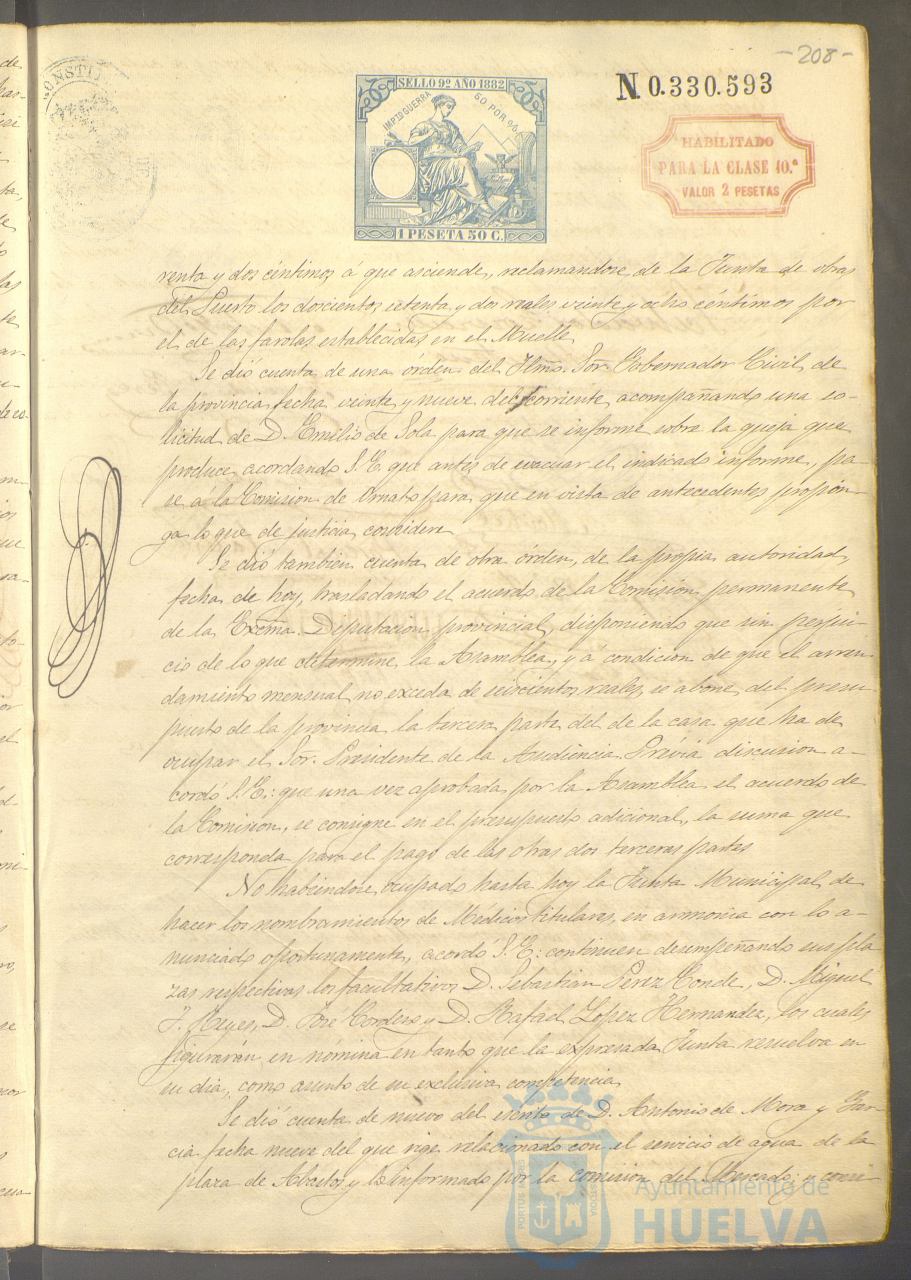 - 208 -
CONSTIT
SELLO 9º AÑO 1882
IMPtO GUERRA 50 POR %
1 PESETA 50 C.
N.0.330.593
HABILITADO
PARA LA CLASE 10.ª
VALOR 2 PESETAS
renta y dos céntimos, á que asciende, reclamandose de la Junta de obras
del Puerto los doscientos, setenta, y dos reales veinte y ocho céntimos por
el de las farolas establecidas en el Muelle.
Se dió cuenta de una órden del Iltmo. Sor. Gobernador Civil de
la provincia, fecha veinte y nueve del corriente, acompañando una so-
licitud de D. Emilio de Sola para que se informe sobre la queja que
produce, acordando S. E. que antes de evacuar el indicado informe, pa-
se á la Comision de Ornato para que en vista de antecedentes propon-
ga lo que de justicia considere
Se dió tambien cuenta de otra órden, de la propia autoridad,
fecha de hoy, trasladando el acuerdo de la Comision permanente
de la Excma. Diputacion provincial, disponiendo que sin perjui-
cio de lo que determine la Asamblea, y á condicion de que el arren-
damiento mensual no exceda de seiscientos reales, se abone del presu-
puesto de la provincia la tercera parte del de la casa que ha de
ocupar el Sor. Presidente de la Audiencia. Prévia discusion a-
cordó S. E.: que una vez aprobada por la Asamblea el acuerdo de
la Comision, se consigne en el presupuesto adicional, la suma que
corresponda para el pago de las otras dos terceras partes
No habiéndose, ocupado hasta hoy la Junta Municipal, de
hacer los nombramientos de Médicos titulares, en armonia con lo a-
nunciado oportunamente, acordó S. E.: continuen desempeñando sus pla-
zas respectivas los facultativos D. Sebastian Perez Conde, D. Miguel
J. Reyes, D. José Cordero y D. Rafael Lopez Hernandez, los cuales
figurarán en nómina en tanto que la expresada Junta resuelva en
su dia, como asunto de su exclusiva competencia
Se dió cuenta de nuevo del escrito de D. Antonio de Mora y Gar-
cia fecha nueve del que rige relacionado con el servicio de agua de la
plaza de Abastos, y lo informado por la comision del Mercado, y
Ayuntamiento de
HUELVA